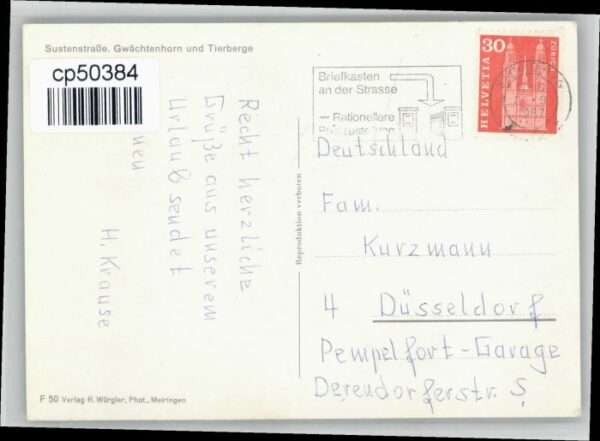 Sustenstraße. Gwächtenhorn und Tierberge
cp50384
Recht herzliche
Grüße aus unserem
Urlaub sendet
H. Krause
F 50 Verlag R. Würgler, Phot., Meiringen
Reproduktion verboten
Briefkasten
an der Strasse
— Rationellere
30
HELVETIA
Deutschland
Fam.
Kurzmann
4 Düsseldorf
Pempelfort-Garage
Derendorferstr. 5